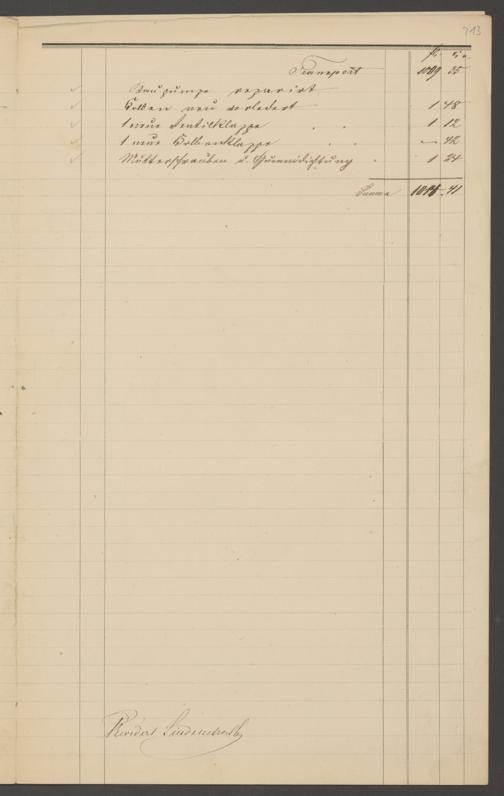 213
fl. kr.
Transport 1009 35
Baupumpe reparirt
Kolben neu verledert 1 48
1 neue Ventilklappe . . 1 12
1 neue Kolbenklappe . . — 42
Mutterschrauben u. Gummidichtung . 1 24
Summa 41
Revidirt